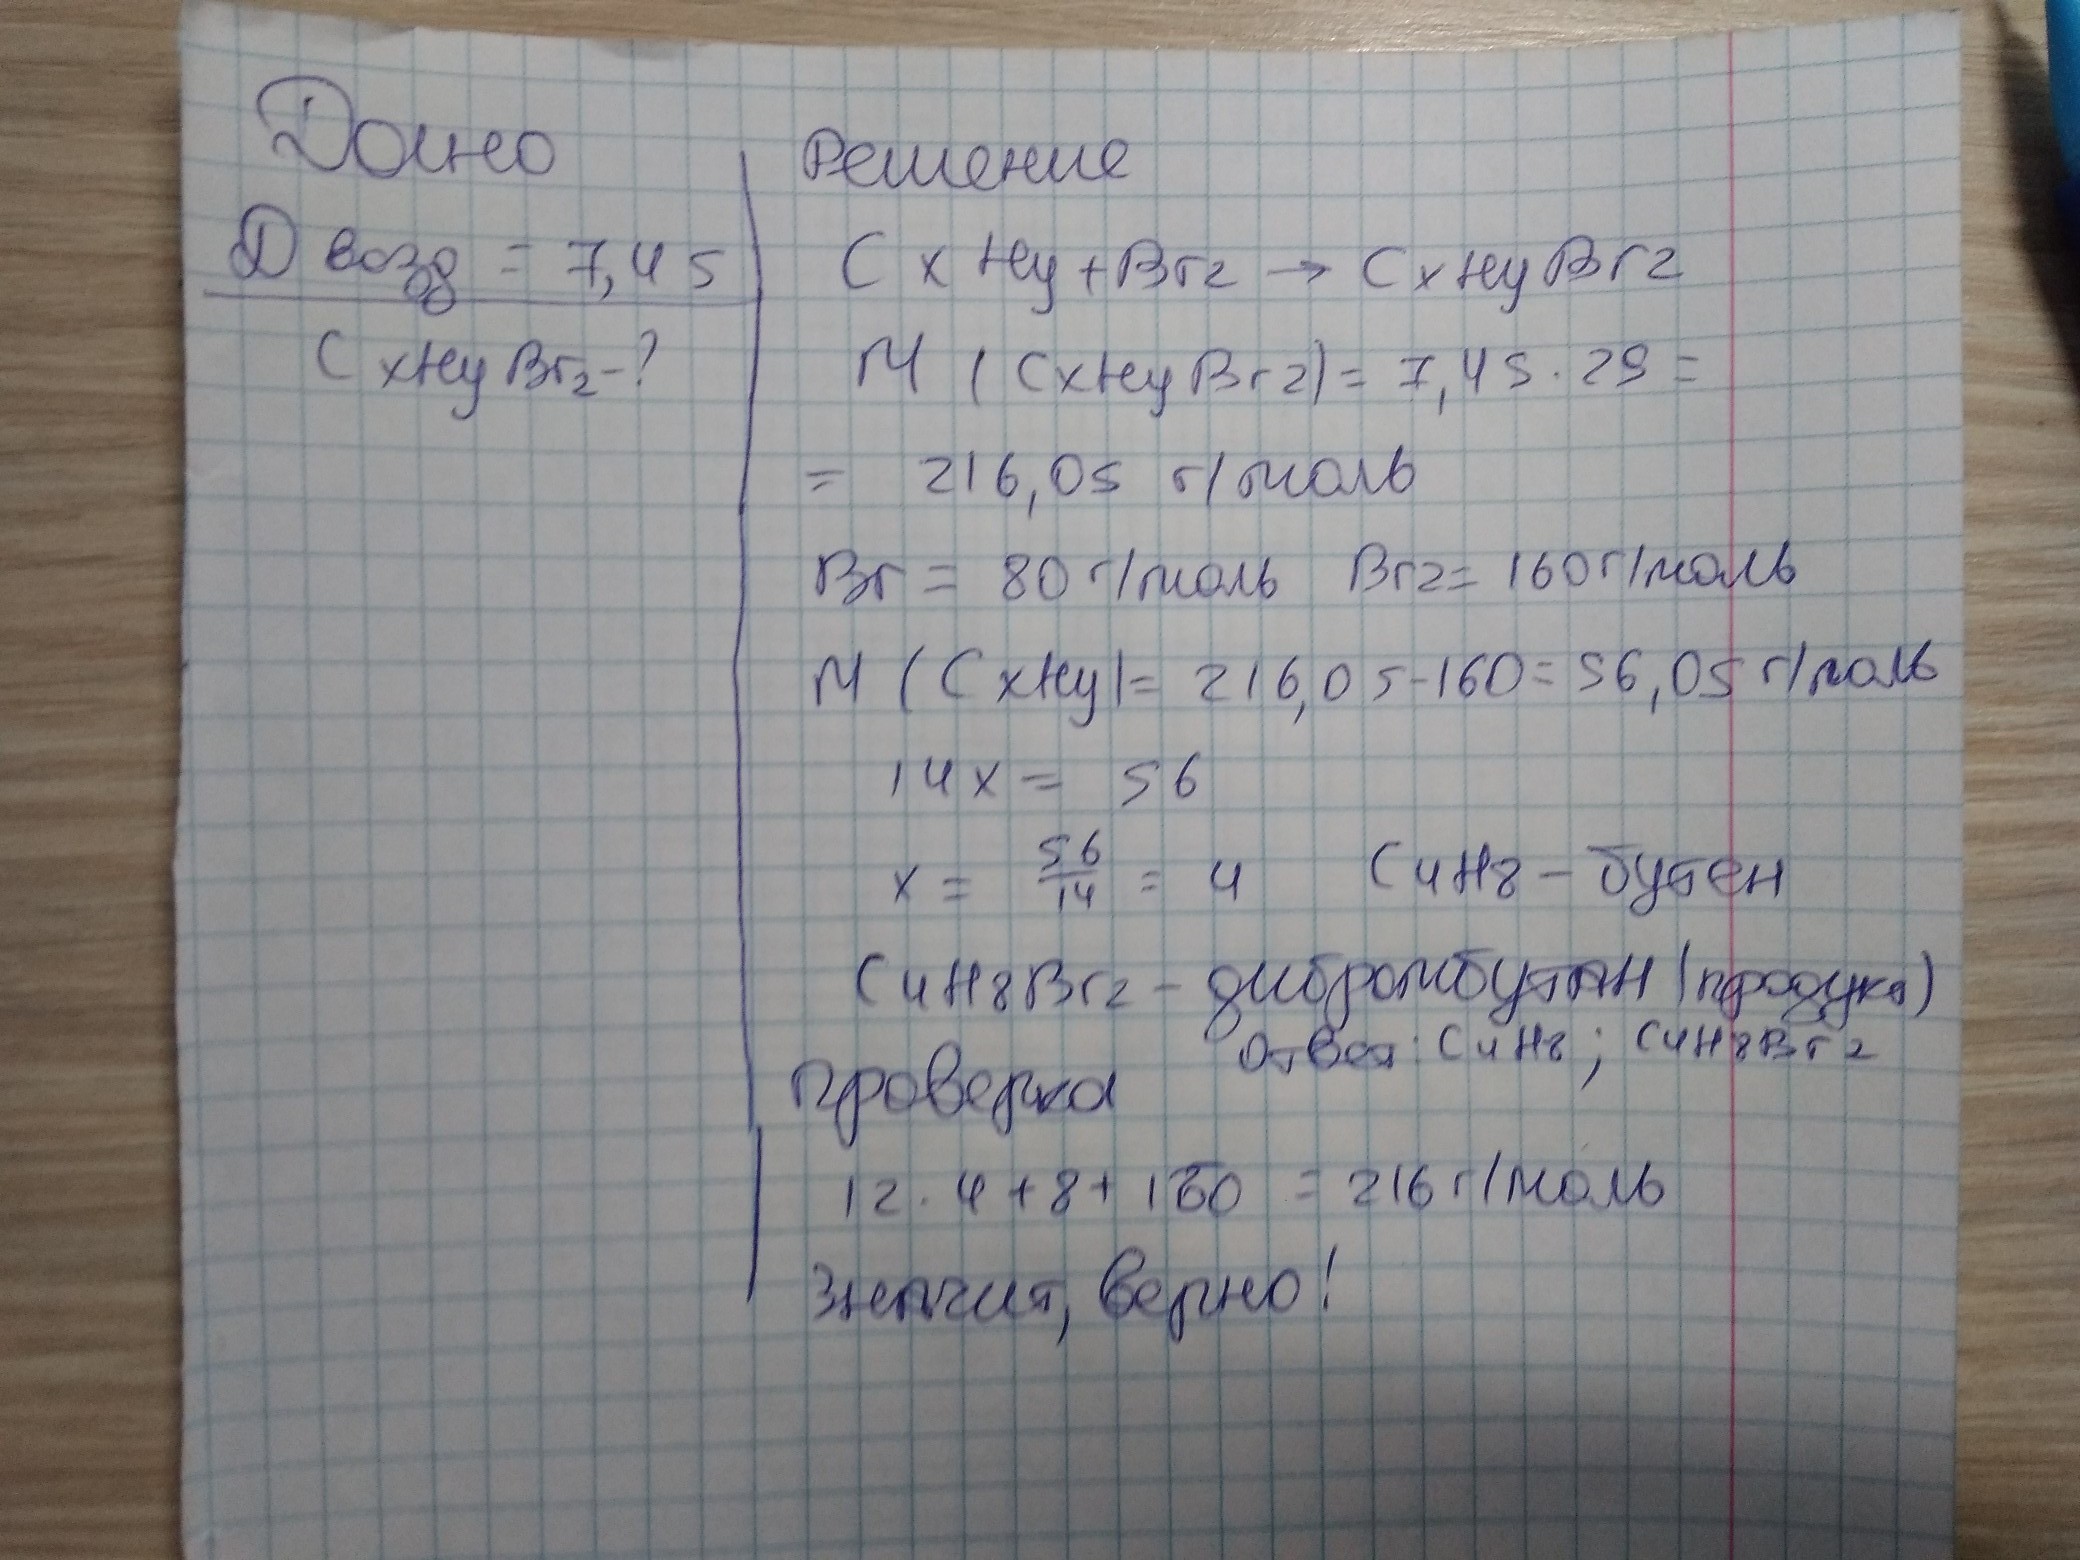 Дано
D возд = 7,45
CxHyBr2-?
Решение
CxHy+Br2 → CxHyBr2
M (CxHyBr2) = 7,45·29 =
= 216,05 г/моль
Br = 80 г/моль Br2= 160 г/моль
M (CxHy)= 216,05-160=56,05 г/моль
14x = 56
x = 56/14 = 4 C4H8 – бутен
C4H8Br2 – дибромбутан (продукт)
Ответ: C4H8; C4H8Br2
Проверка
12·4+8+160 = 216 г/моль
Значит, верно!